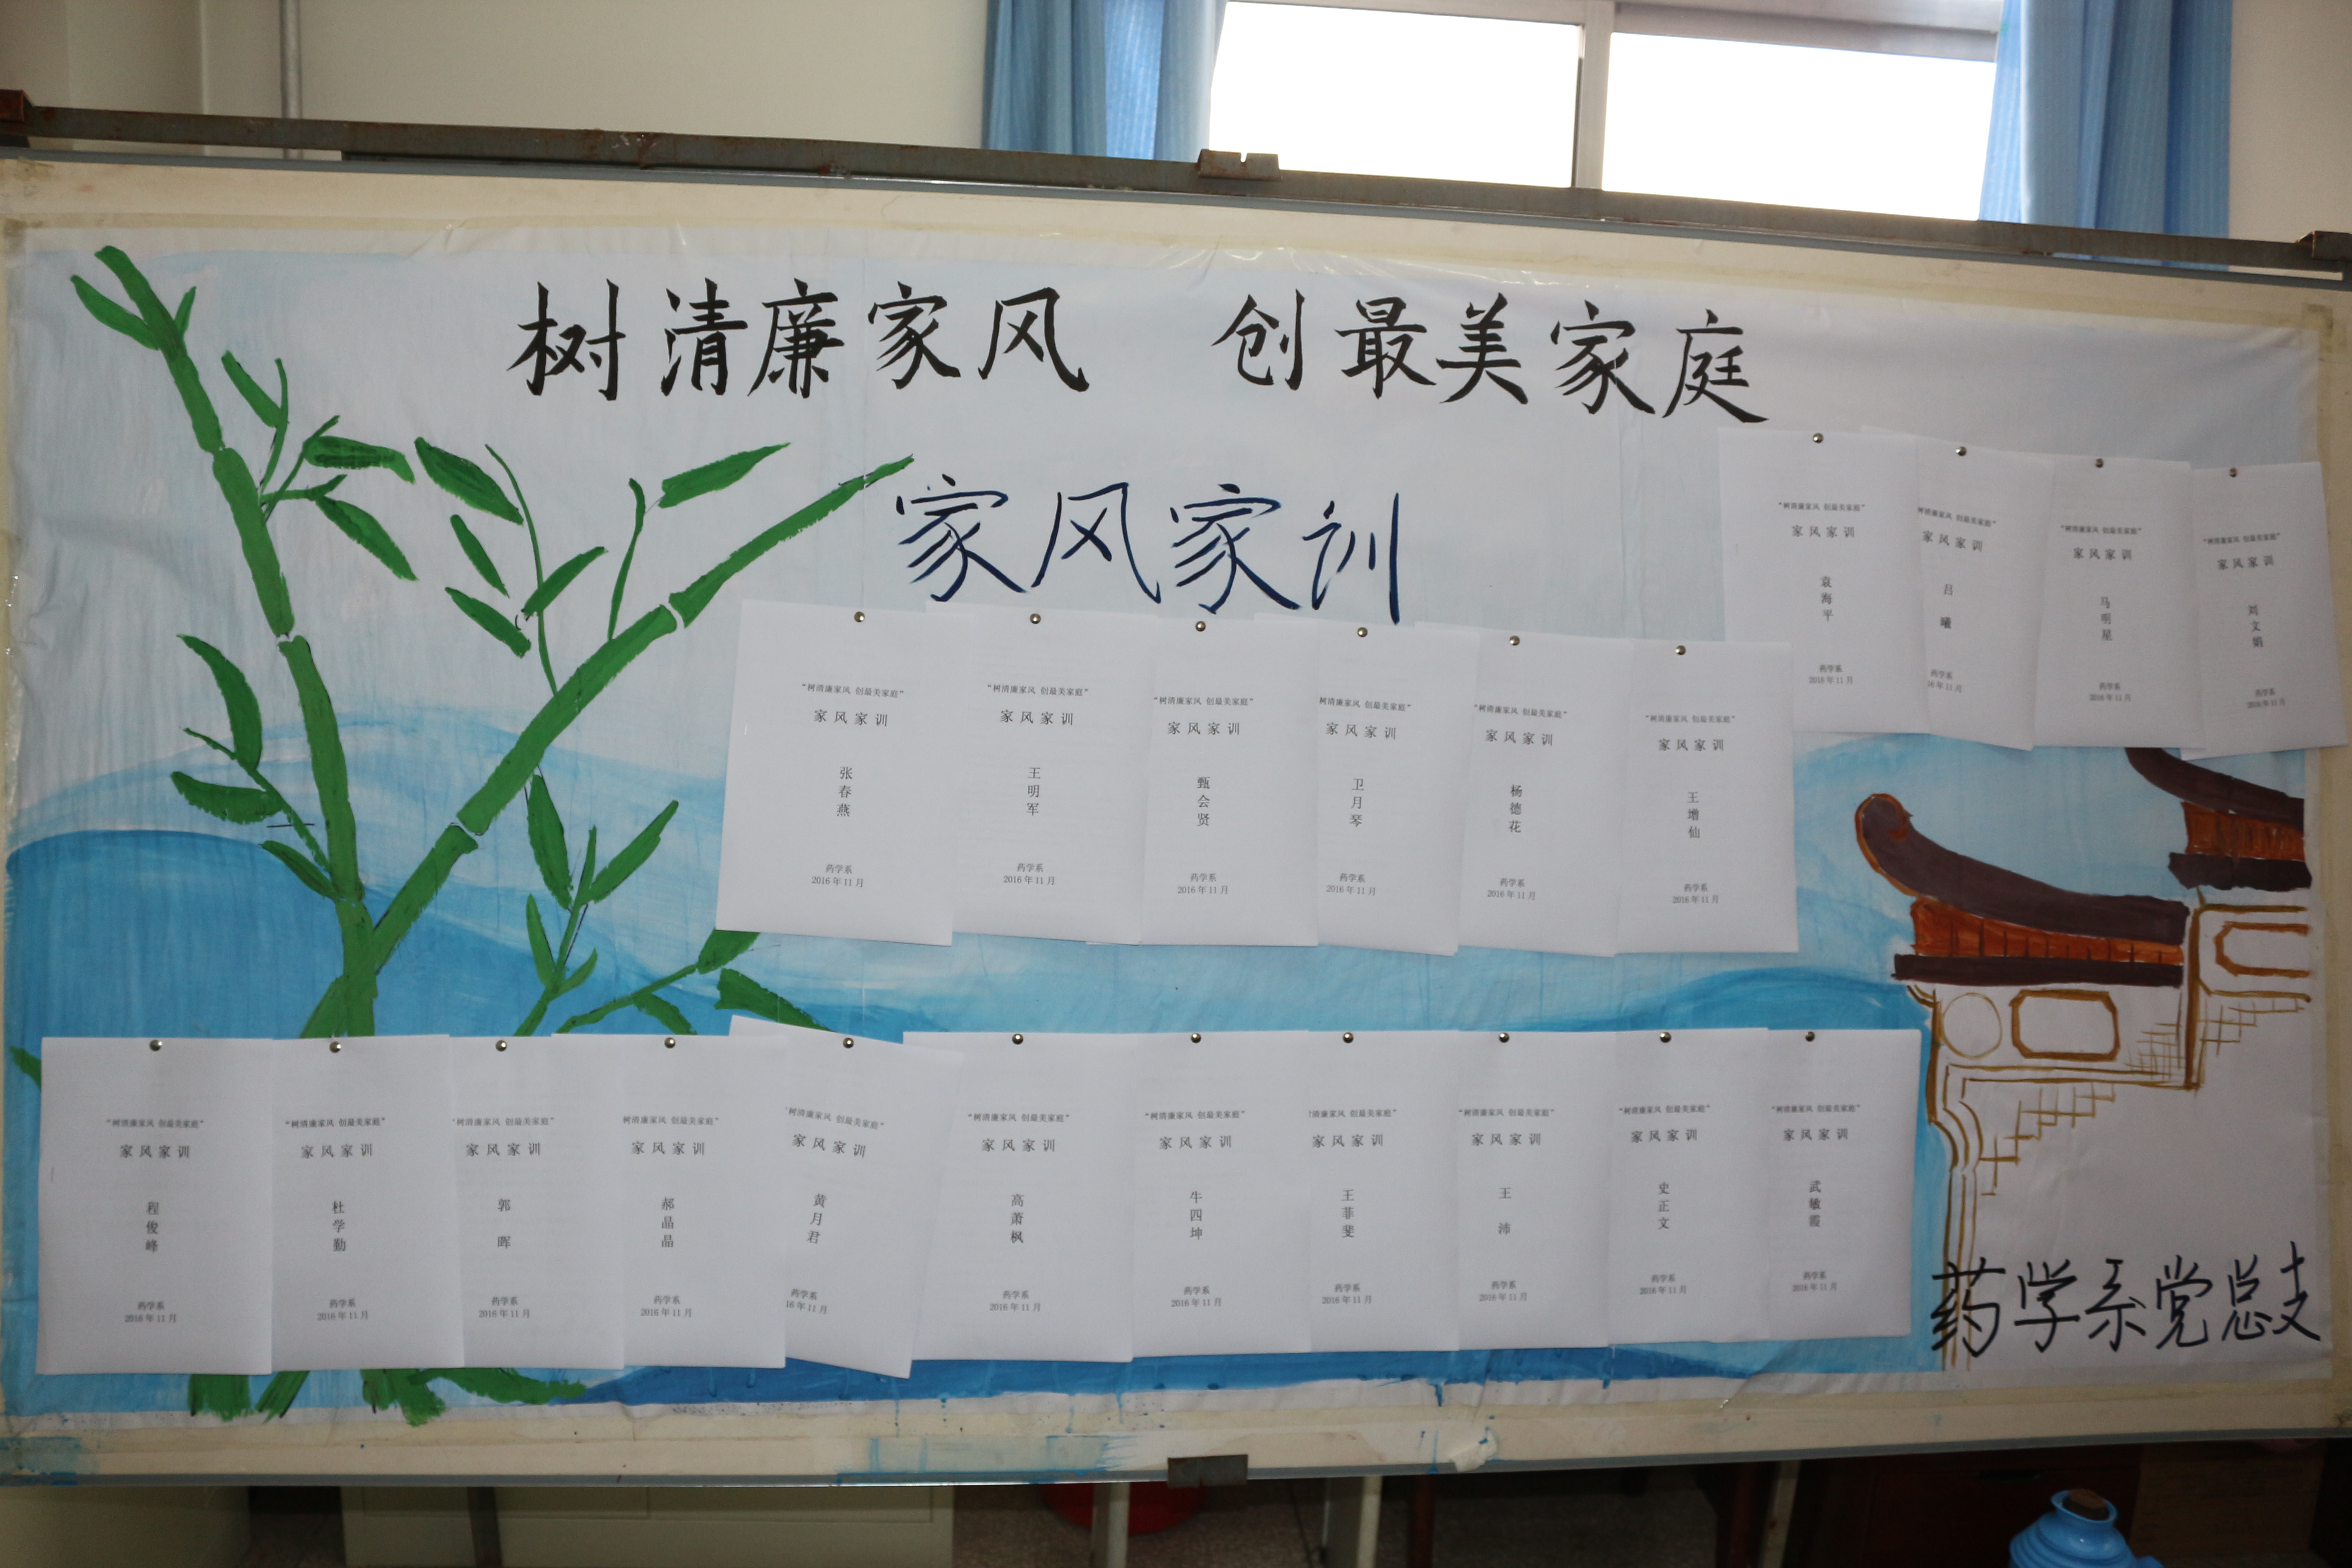 树清廉家风 创最美家庭
家风家训
“树清廉家风 创最美家庭”
家风家训
袁海平
药学系
2016年11月
树清廉家风 创最美家庭”
家风家训
吕曦
药学系
16年11月
“树清廉家风 创最美家庭”
家风家训
马明星
药学系
2016年11月
“树清廉家风 创最美家庭”
家风家训
刘文娟
药学系
2016年11月
“树清廉家风 创最美家庭”
家风家训
张春燕
药学系
2016年11月
“树清廉家风 创最美家庭”
家风家训
王明军
药学系
2016年11月
“树清廉家风 创最美家庭”
家风家训
甄会贤
药学系
2016年11月
树清廉家风 创最美家庭”
家风家训
卫月琴
药学系
2016年11月
“树清廉家风 创最美家庭”
家风家训
杨德花
药学系
2016年11月
“树清廉家风 创最美家庭”
家风家训
王增仙
药学系
2016年11月
“树清廉家风 创最美家庭”
家风家训
程俊峰
药学系
2016年11月
“树清廉家风 创最美家庭”
家风家训
杜学勤
药学系
2016年11月
“树清廉家风 创最美家庭”
家风家训
郭晖
药学系
2016年11月
“树清廉家风 创最美家庭”
家风家训
郝晶晶
药学系
2016年11月
“树清廉家风 创最美家庭”
家风家训
黄月君
药学系
16年11月
“树清廉家风 创最美家庭”
家风家训
高萧枫
药学系
2016年11月
“树清廉家风 创最美家庭”
家风家训
牛四坤
药学系
2016年11月
树清廉家风 创最美家庭”
家风家训
王菲斐
药学系
2016年11月
“树清廉家风 创最美家庭”
家风家训
王沛
药学系
2016年11月
“树清廉家风 创最美家庭”
家风家训
史正文
药学系
2016年11月
“树清廉家风 创最美家庭”
家风家训
武敏霞
药学系
2016年11月
药学系党总支